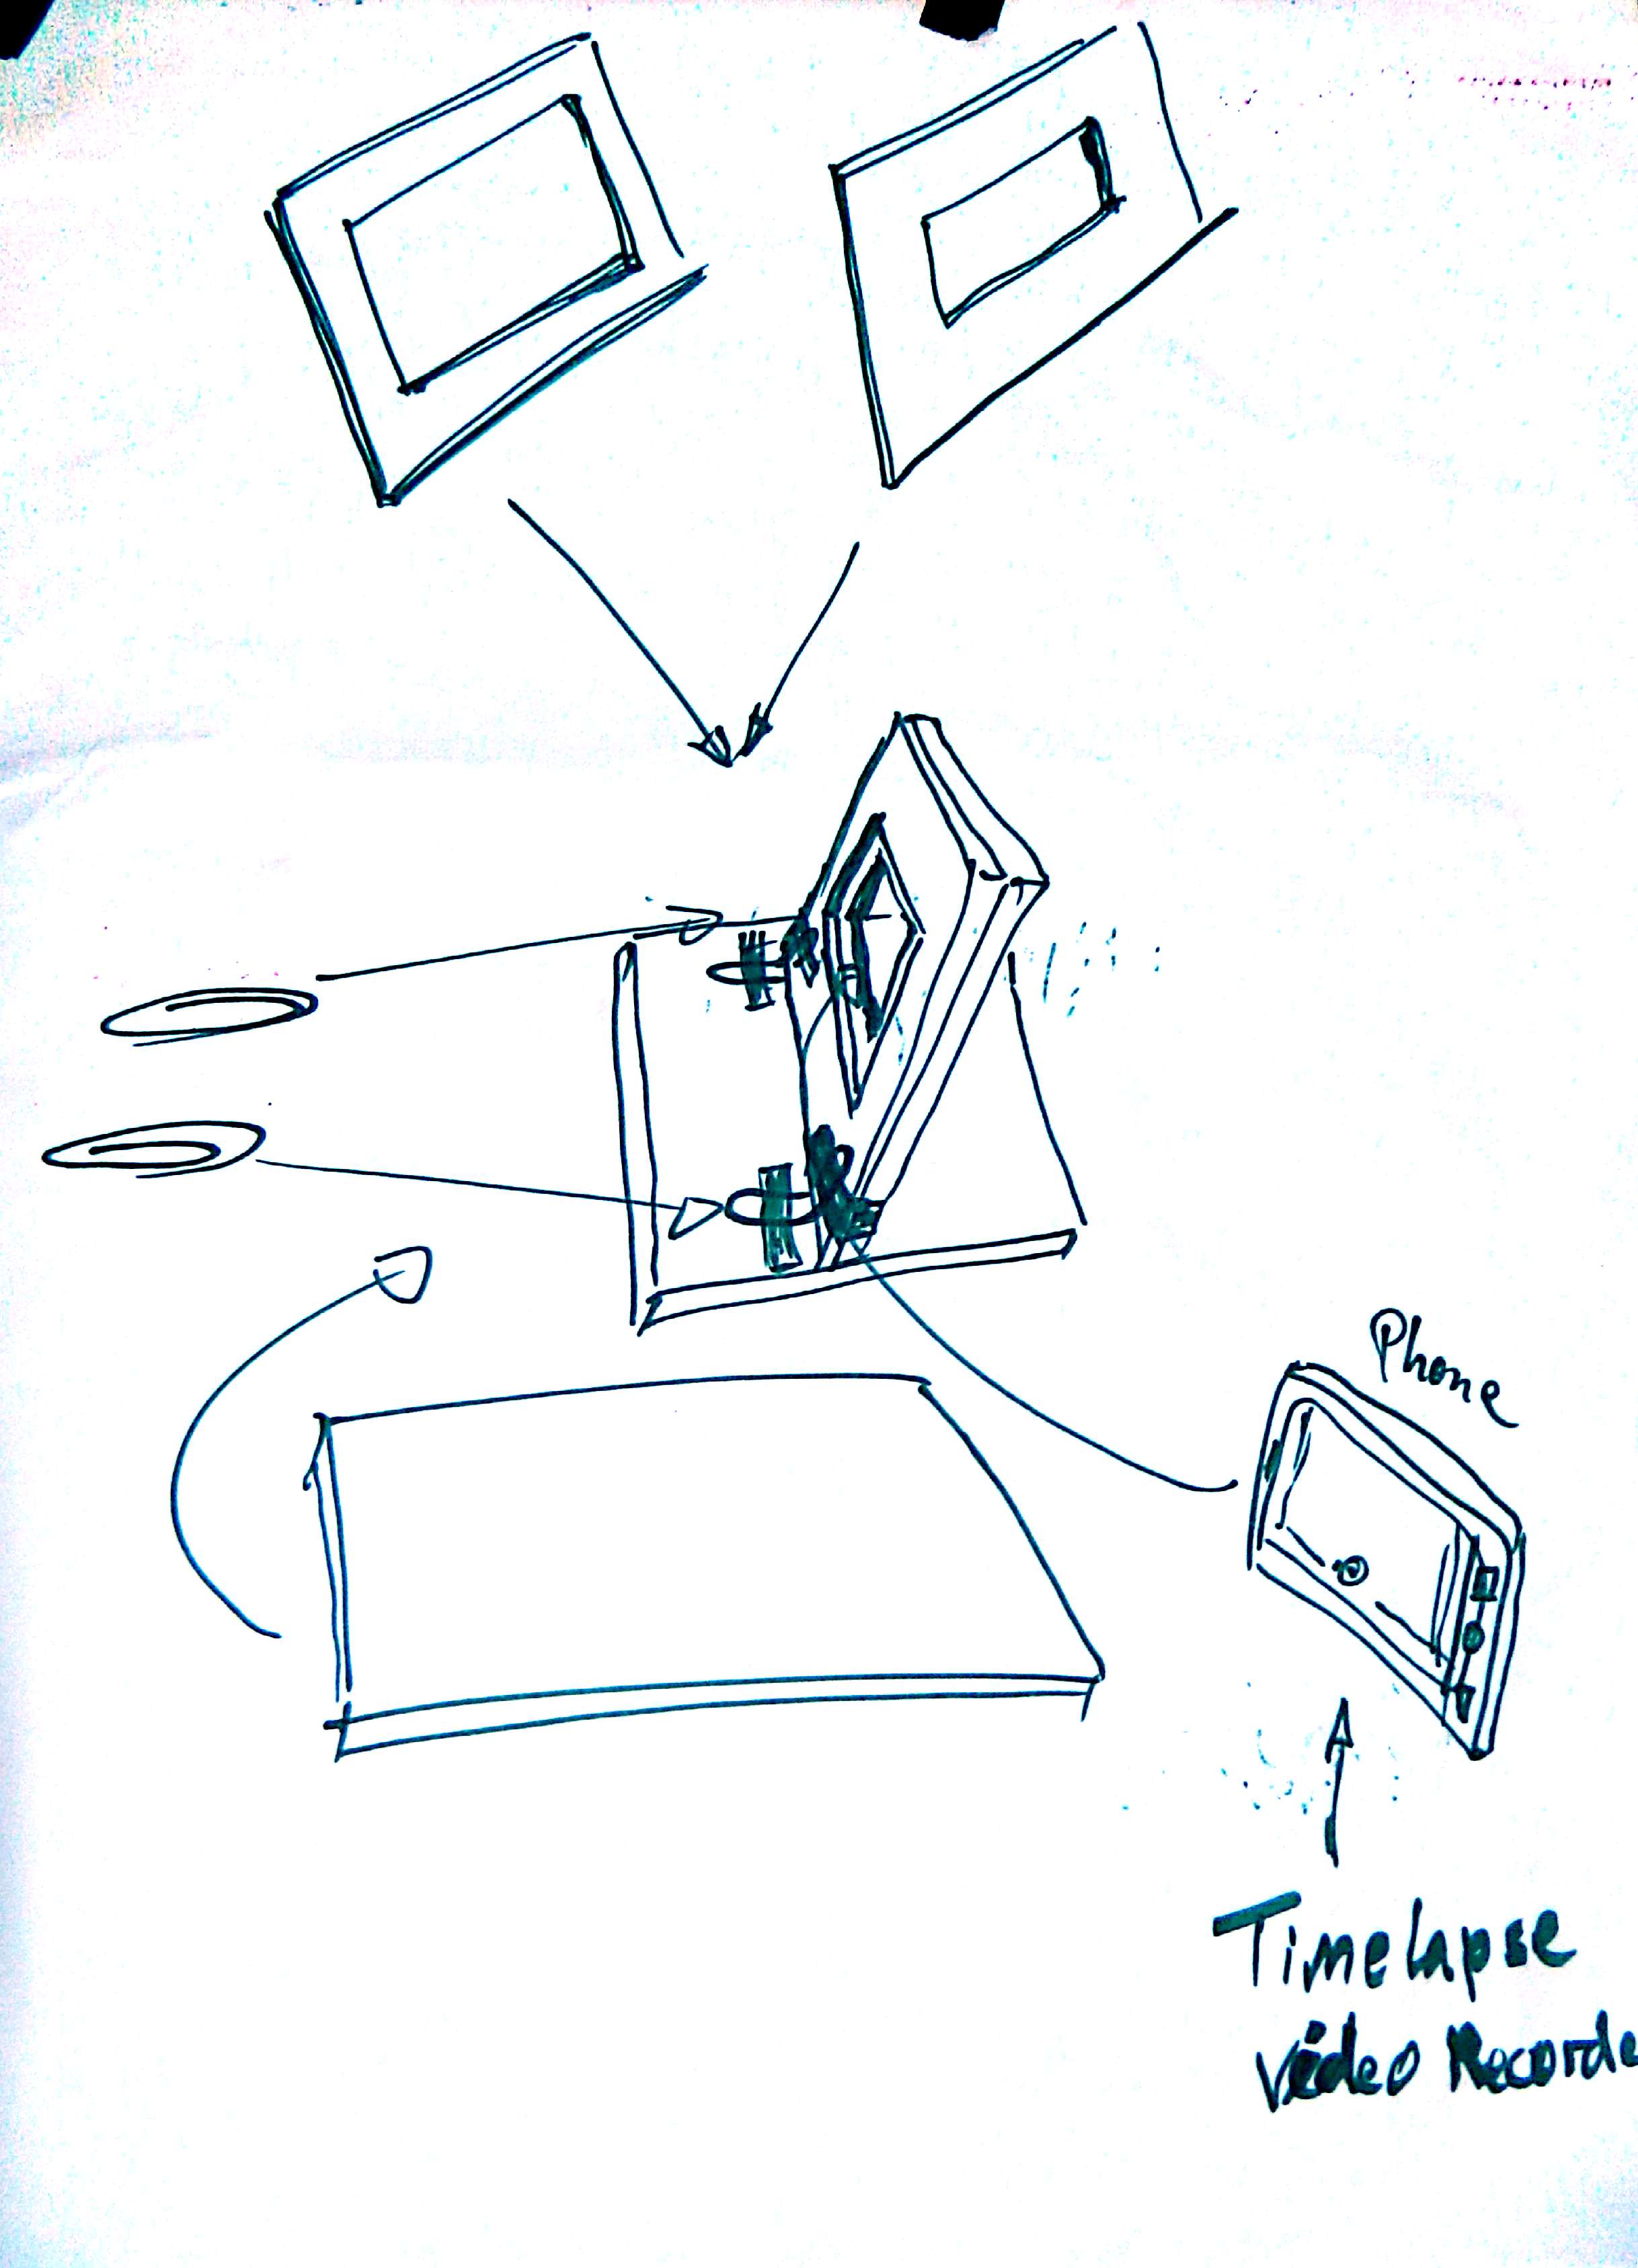 Phone
Timelapse
Video Recorde